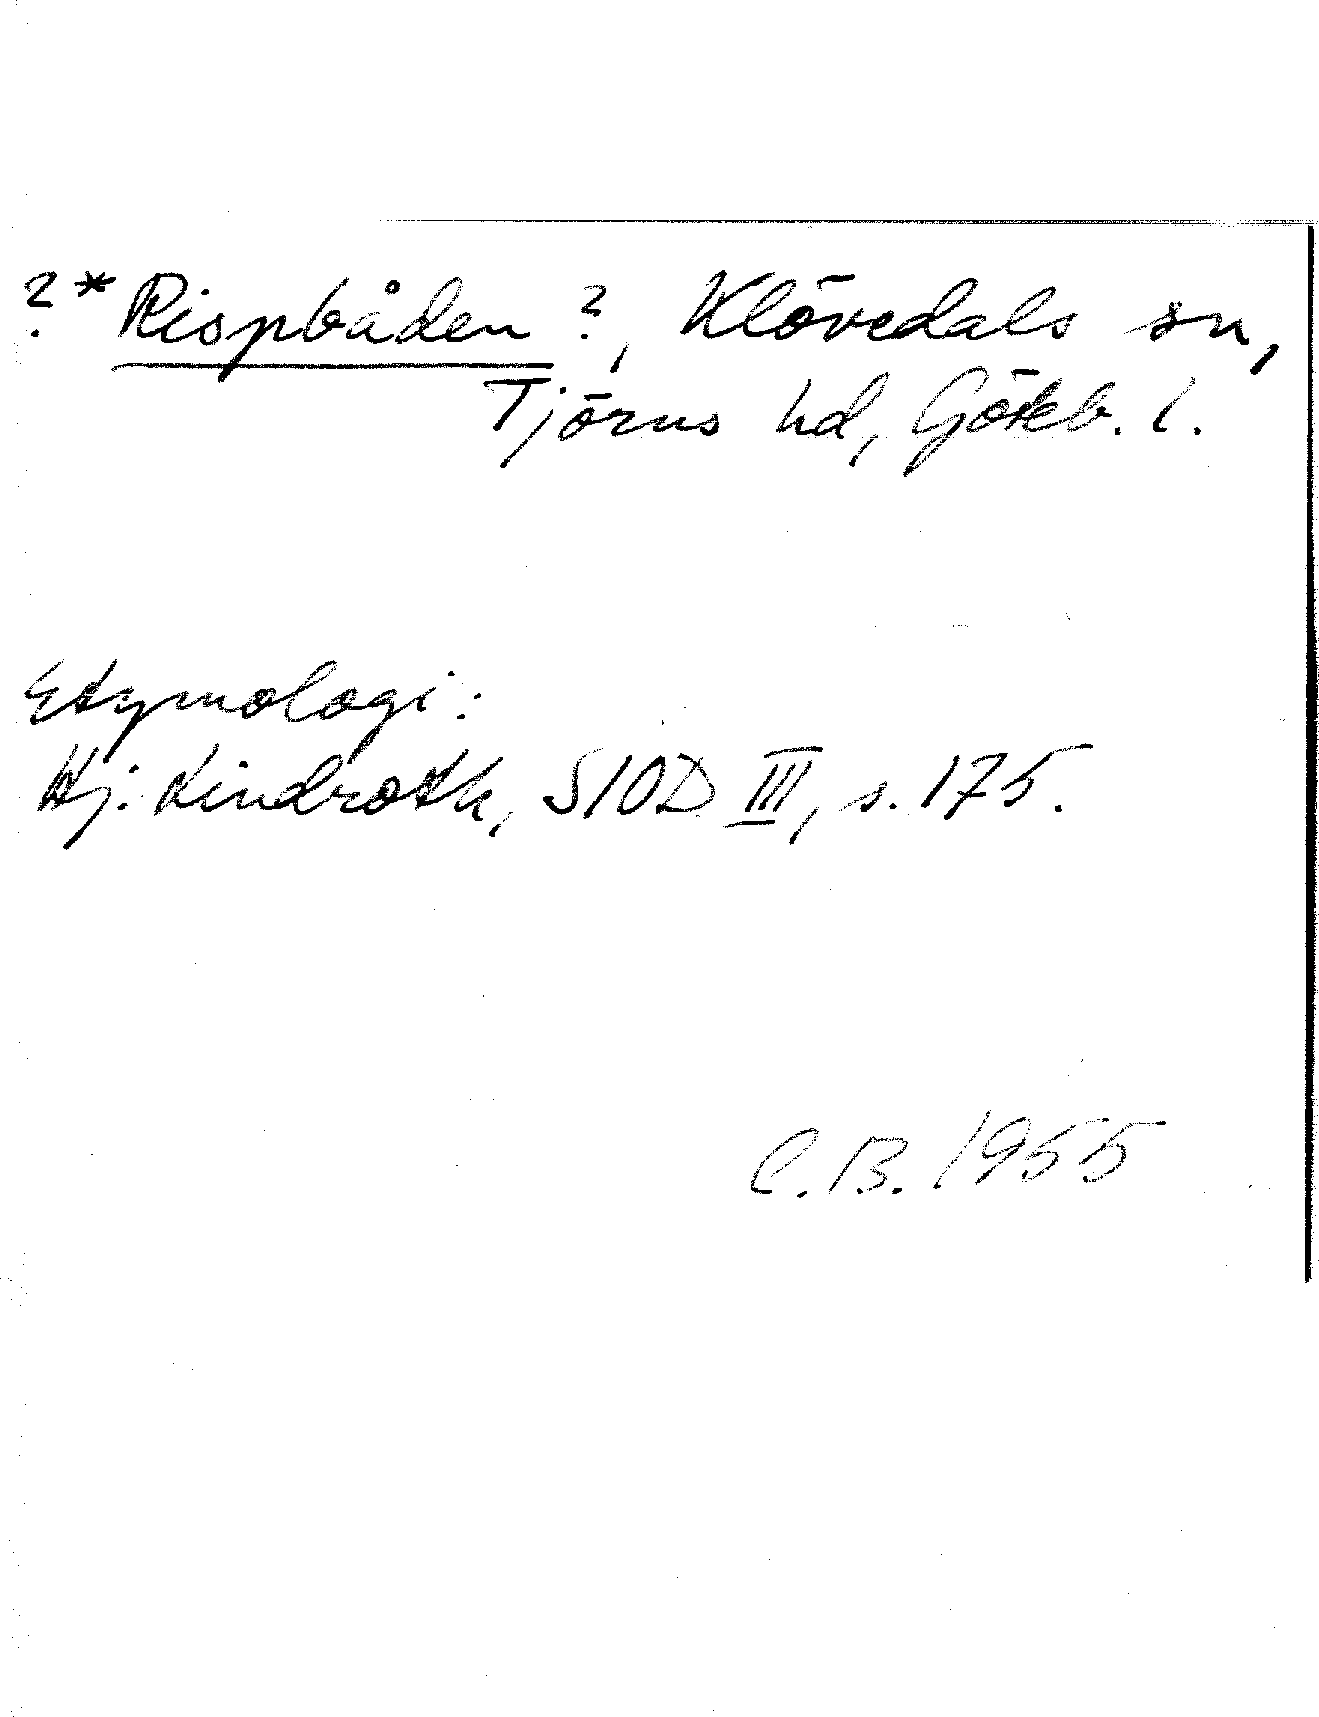 ? * Rispbåden ?, Klövedals sn,
Tjörns hd, Götebg. l.
Etymologi:
Hj. Lindroth, SIOD III, s. 175.
C.B. 1955